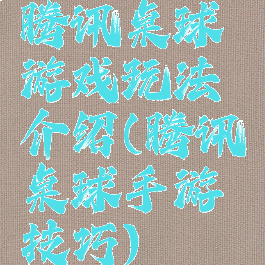 腾讯桌球
游戏玩法
介绍(腾讯
桌球手游
技巧)